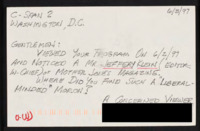 C-SPAN 2 6/2/97
WASHINGTON, D.C.
GENTLEMEN:
VIEWED YOUR PROGRAM ON 6/2/97
AND NOTICED A MR. JEFFREY KLEIN (EDITOR-
IN-CHIEF) OF MOTHER JONES MAGAZINE.
WHERE DID YOU FIND SUCH A LIBERAL-
MINDED "MORON"?
A CONCERNED VIEWER